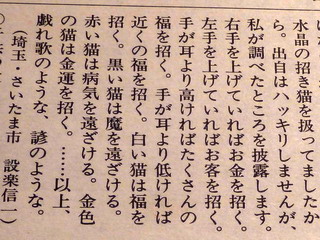 水晶の招き猫を扱ってましたか
ら。出自はハッキリしませんが、
私が調べたところを披露します。
右手を上げていればお金を招く。
左手を上げていればお客を招く。
手が耳より高ければたくさんの
福を招く。手が耳より低ければ
近くの福を招く。白い猫は福を
招く。黒い猫は魔を遠ざける。
赤い猫は病気を遠ざける。金色
の猫は金運を招く。……以上、
戯れ歌のような、諺のような。
（埼玉・さいたま市　設楽信一）